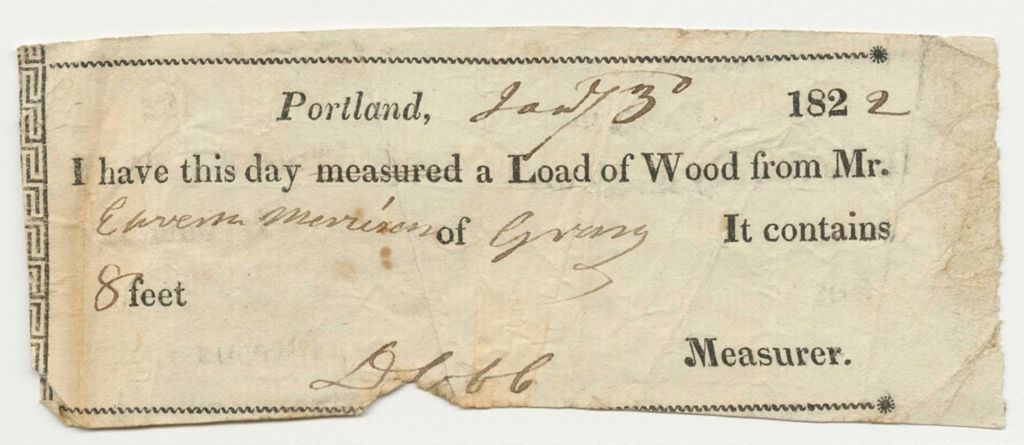 Portland, Jany 3d 1822
I have this day measured a Load of Wood from Mr.
Merrison of Gray It contains
8 feet
D Cobb Measurer.